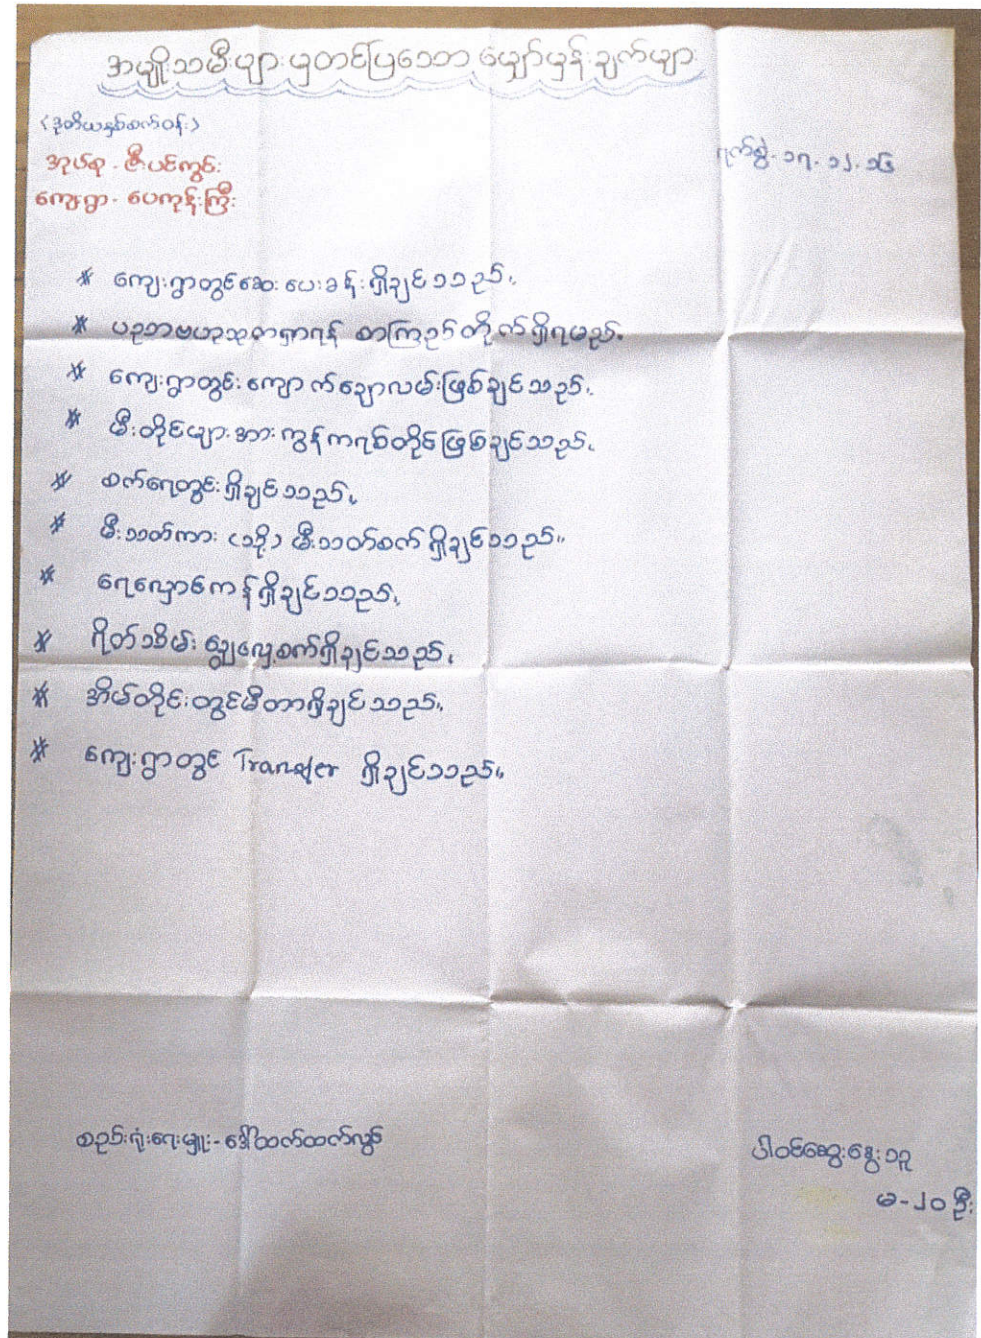 အမျိုးသမီးများမှတင်ပြသော မျှော်မှန်းချက်များ
(ဒုတိယနှစ်စက်ဝန်း)
အုပ်စု - ဇီးပင်ကွင်း
ရက်စွဲ - ၁၇ - ၁၂ - ၁၆
ကျေးရွာ - ပေကုန်းကြီး
* ကျေးရွာတွင်ဆေးပေးခန်းရှိချင်သည်။
* ပညာဗဟုသုတရှာရန် စာကြည့်တိုက်ရှိရမည်။
* ကျေးရွာတွင်း ကျောက်ချောလမ်းဖြစ်ချင်သည်။
* မီးတိုင်များအား ကွန်ကရစ်တိုင်ဖြစ်ချင်သည်။
* စက်ရေတွင်းရှိချင်သည်။
* မီးသတ်ကား (သို့) မီးသတ်စက်ရှိချင်သည်။
* ရေလှောင်ကန်ရှိချင်သည်။
* ရိတ်သိမ်းချွေလှေ့စက်ရှိချင်သည်။
* အိမ်တိုင်းတွင်မီတာရှိချင်သည်။
* ကျေးရွာတွင် Transfer ရှိချင်သည်။
စည်းရုံးရေးမှူး - ဒေါ်ထက်ထက်လွင်
ပါဝင်ဆွေးနွေးသူ
မ - ၂၀ ဦး